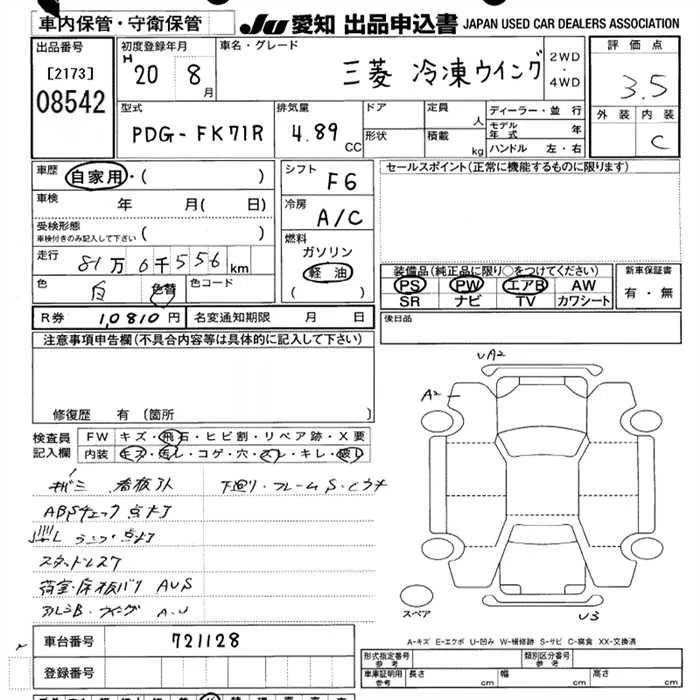 車内保管・守衛保管
JU 愛知 出品申込書 JAPAN USED CAR DEALERS ASSOCIATION
出品番号
[2173]
08542
初度登録年月
H 20 8 月
車名・グレード
三菱 冷凍ウイング
2WD
・
4WD
評価点
3.5
外装 内装
C
型式
PDG-FK71R
排気量
4.89 CC
ドア
形状
定員 人
積載 kg
ディーラー・並行
モデル年式 年
ハンドル 左・右
車歴
自家用・( )
車検 年 月( 日)
受検形態
車検付きのみ記入して下さい ( )
走行 81万6千556km
色 白 色替 色コード
シフト F6
冷房 A/C
燃料
ガソリン
軽油
( )
セールスポイント(正常に機能するものに限ります)
装備品(純正品に限り○をつけてください)
PS PW エアB AW
SR ナビ TV カワシート
新車保証書
有・無
R券 10810円 名変通知期限 月 日
後日品
注意事項申告欄(不具合内容等は具体的に記入して下さい)
修復歴 有〔箇所 〕
検査員
記入欄
FW キズ・飛石・ヒビ割・リペア跡・X要
内装 キズ・汚レ・コゲ・穴・スレ・キレ・破レ
キバミ 看板アト
下廻り・フレームS・C
ABSチェック点灯
ランプ点灯
スタットレス
荷室・床板バリ AUS
アルミB・ウィング A・U
UA2
A2
U3
スペア
A-キズ E-エクボ U-凹み W-補修跡 S-サビ C-腐食 XX-交換済
車台番号 721128
登録番号
型式指定番号
参考
類別区分番号
参考
車庫証明用
参考
長さ cm 幅 cm 高さ cm